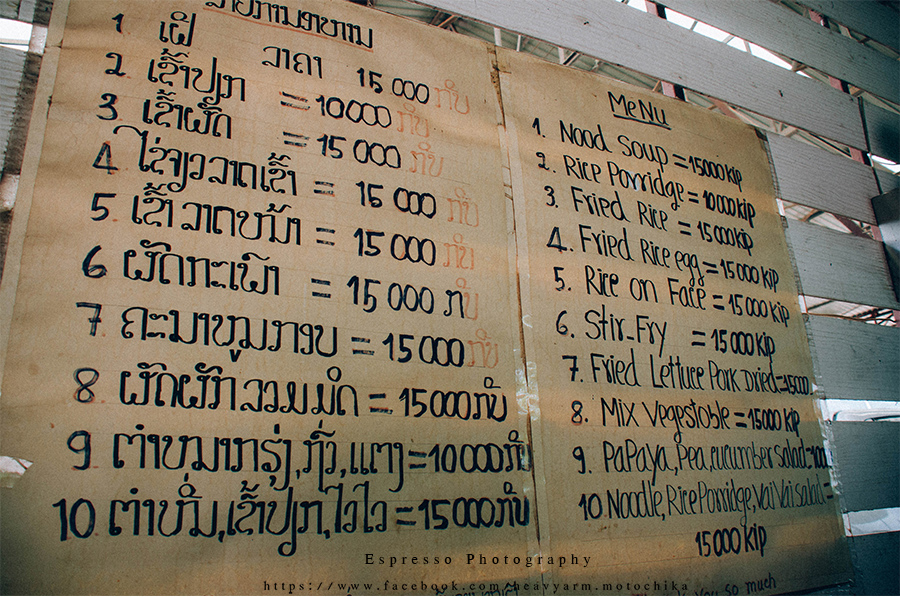 ລາຍການອາຫານ
ລາຄາ
1 ເຝີ 15 000 ກີບ
2 ເຂົ້າປຽກ = 10000 ກີບ
3 ເຂົ້າຜັດ = 15 000 ກີບ
4 ໄຂ່ຈຽວລາດເຂົ້າ = 15 000 ກີບ
5. ເຂົ້າລາດໜ້າ = 15 000 ກີບ
6 ຜັດກະເພົາ = 15 000 ກີບ
7 ຄະນາໝູກອບ = 15 000 ກີບ
8 ຜັດຜັກລວມມິດ = 15 000 ກີບ
9 ຕຳໝາກຮຸ່ງ,ຖົ່ວ,ແຕງ = 10 000 ກີບ
10 ຕຳຫມີ່,ເຂົ້າປຽກ,ໄວໄວ = 15 000 ກີບ
MeNu
1. Nood Soup = 15000 kip
2. Rice Porridge = 10000 kip
3. Fried Rice = 15000 kip
4. Fried Rice egg = 15000 kip
5. Rice on Face = 15000 kip
6. Stir-Fry = 15000 kip
7. Fried Lettuce Pork Dried = 15000
8. Mix Vegestoble = 15000 kip
9. PaPaya, Pea, cucumber salad =
10. Noodle, Rice Porridge, Vai Vai Salad =
15000 kip
you so much
Espresso Photography
https://www.facebook.com/heavyarm.motochika